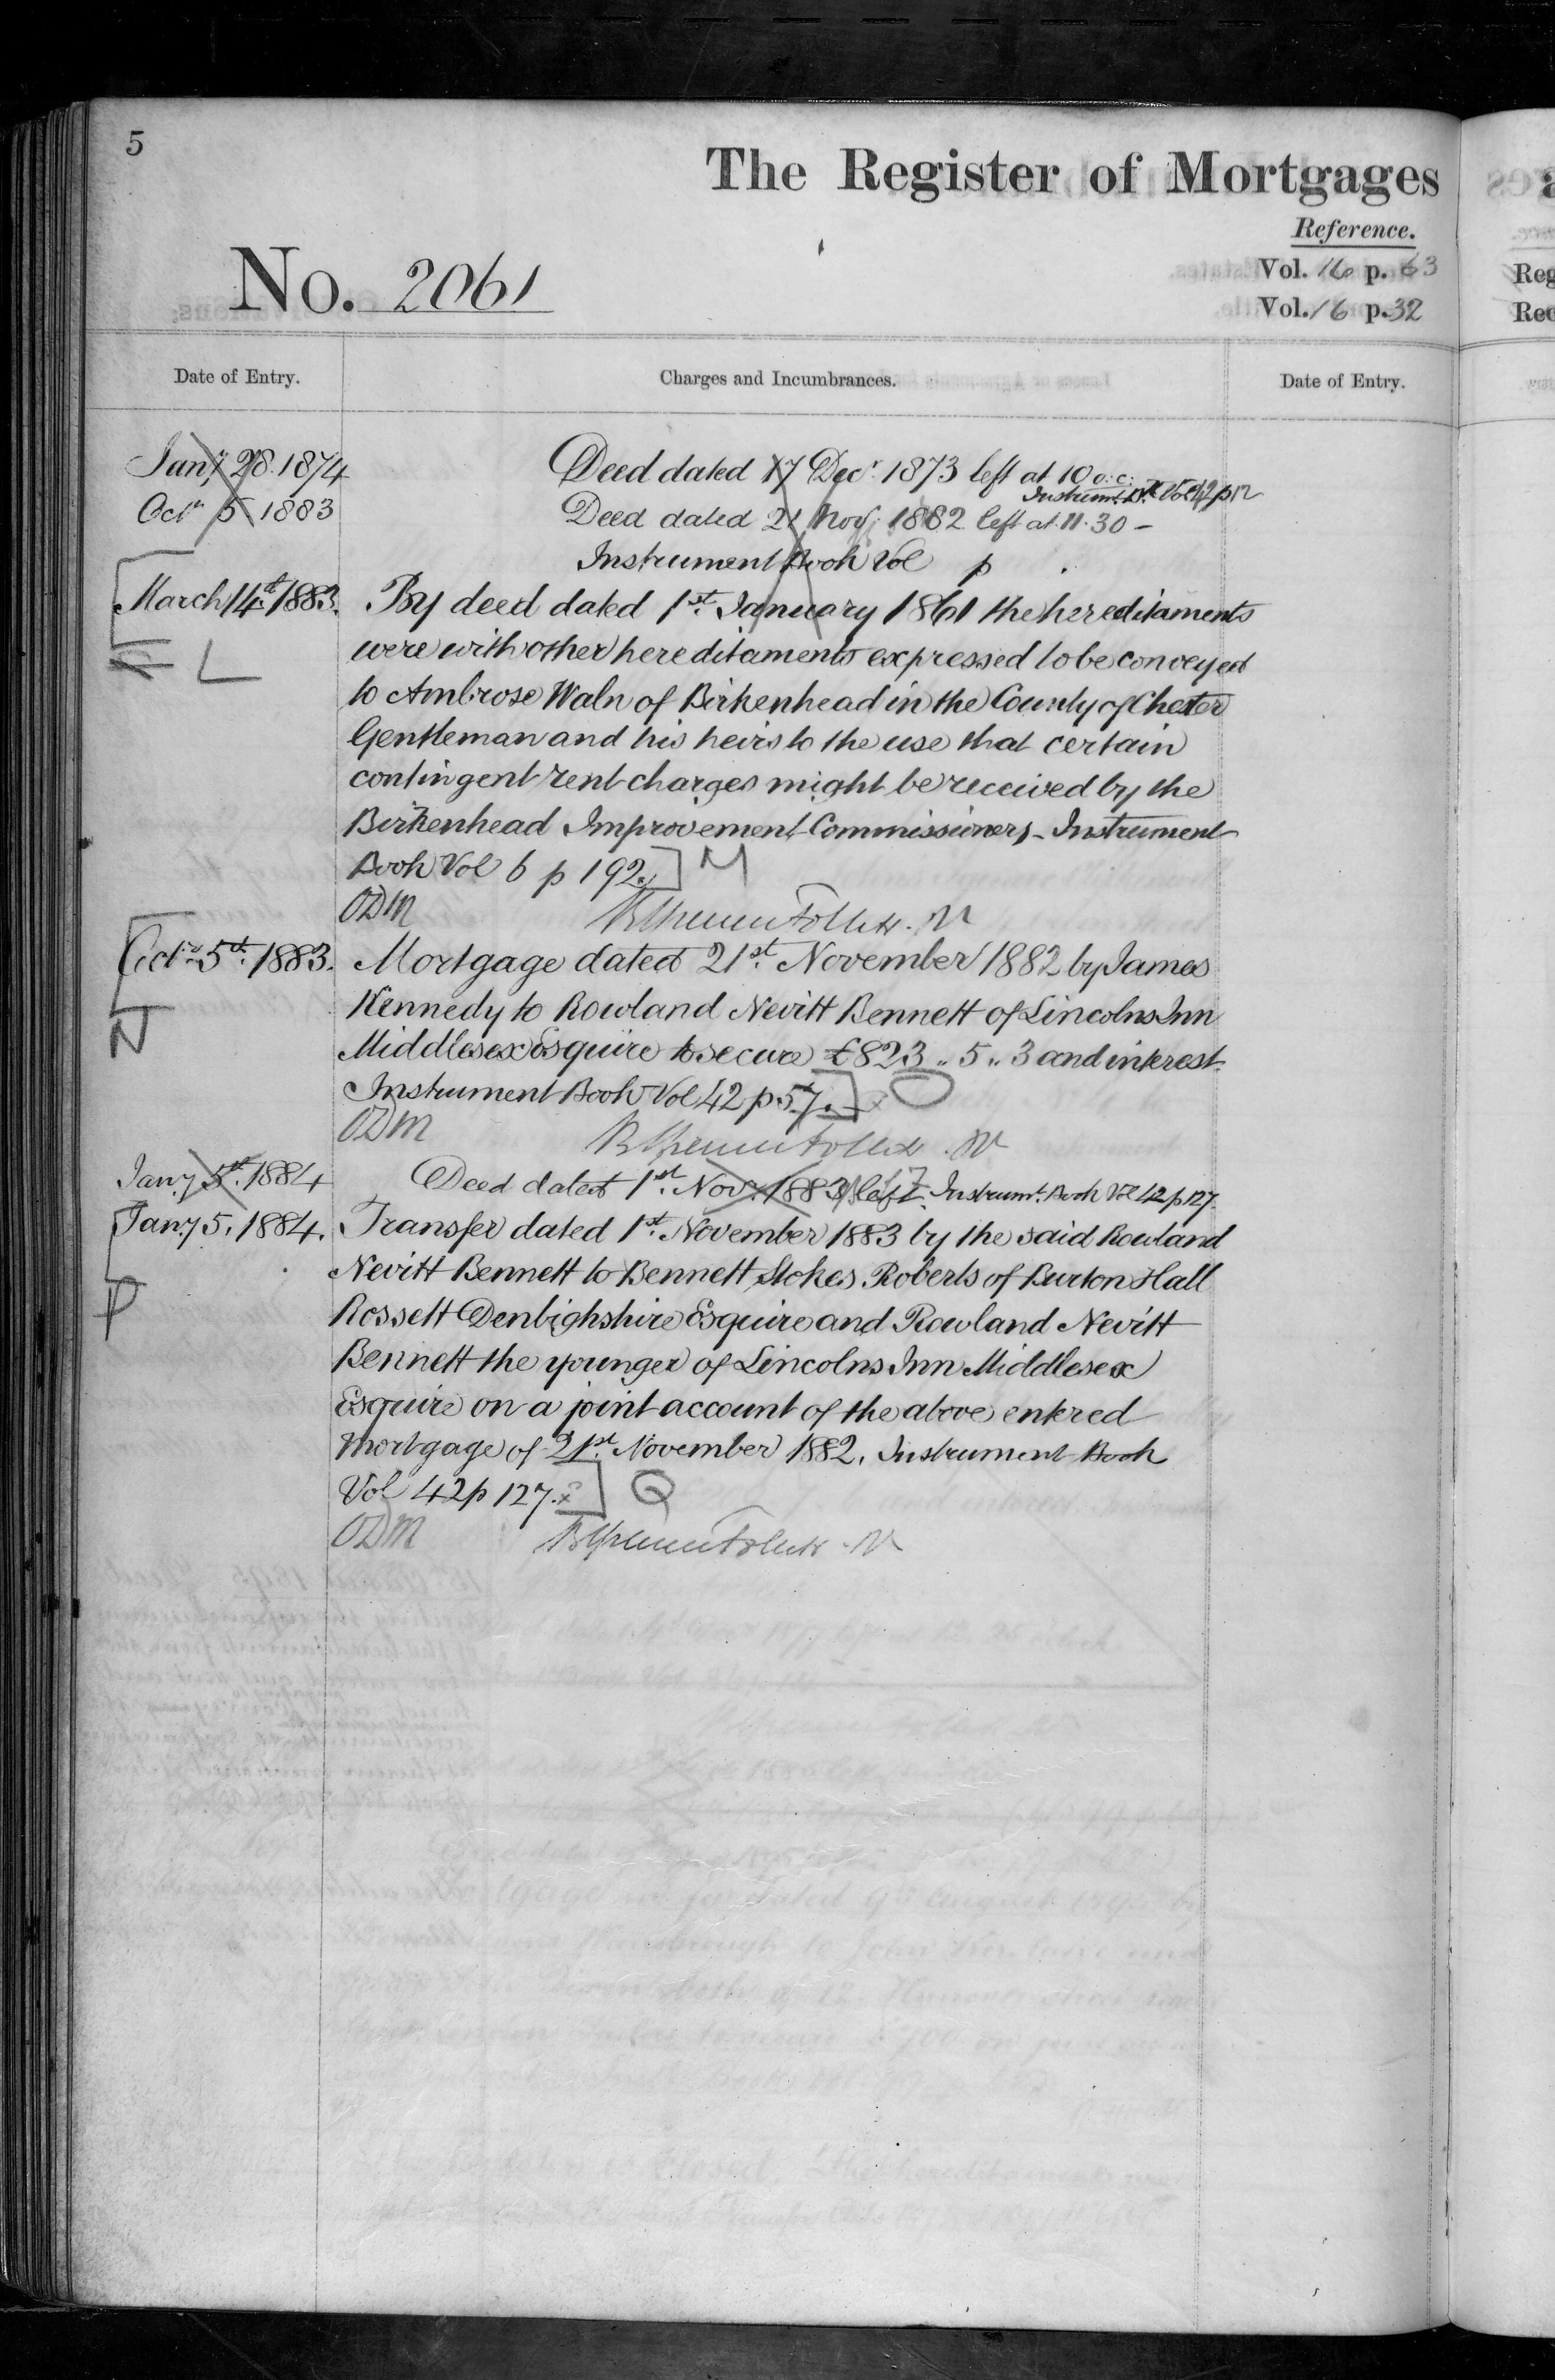 5
The Register of Mortgages
Reference.
No. 2061
Vol. 16 p. 63
Vol. 16 p. 32
Date of Entry.
Charges and Incumbrances.
Date of Entry.
Jany 28. 1874
Deed dated 17 Decr. 1873 left at 10 o.c:
Instrumt. Bk Vol 42 p 12
Octr 5 1883
Deed dated 21 Novr. 1882 left at 11.30 -
Instrument Book Vol p .
March 14th 1883.
By deed dated 1st January 1861 the hereditaments
were with other hereditaments expressed to be conveyed
L
to Ambrose Waln of Birkenhead in the County of Chester
Gentleman and his heirs to the use that certain
contingent rent charges might be received by the
Birkenhead Improvement Commissioners - Instrument
Book Vol 6 p 192. ] M
ODM
Octr. 5th. 1883.
Mortgage dated 21st. November 1882 by James
Kennedy to Rowland Nevitt Bennett of Lincolns Inn
N
Middlesex Esquire to secure £823 " 5 " 3 and interest.
Instrument Book Vol 42 p 57. ] O
ODM
Jany 5th. 1884
Deed dated 1st. Novr. 1883 left. Instrumt. Book Vol 42 p 127.
Jany 5. 1884.
Transfer dated 1st. November 1883 by the said Rowland
Nevitt Bennett to Bennett Stokes Roberts of Burton Hall
P
Rossett Denbighshire Esquire and Rowland Nevitt
Bennett the younger of Lincolns Inn Middlesex
Esquire on a joint account of the above entered
Mortgage of 21st. November 1882. Instrument Book
Vol 42 p 127. ] Q
ODM
Reg
Rec